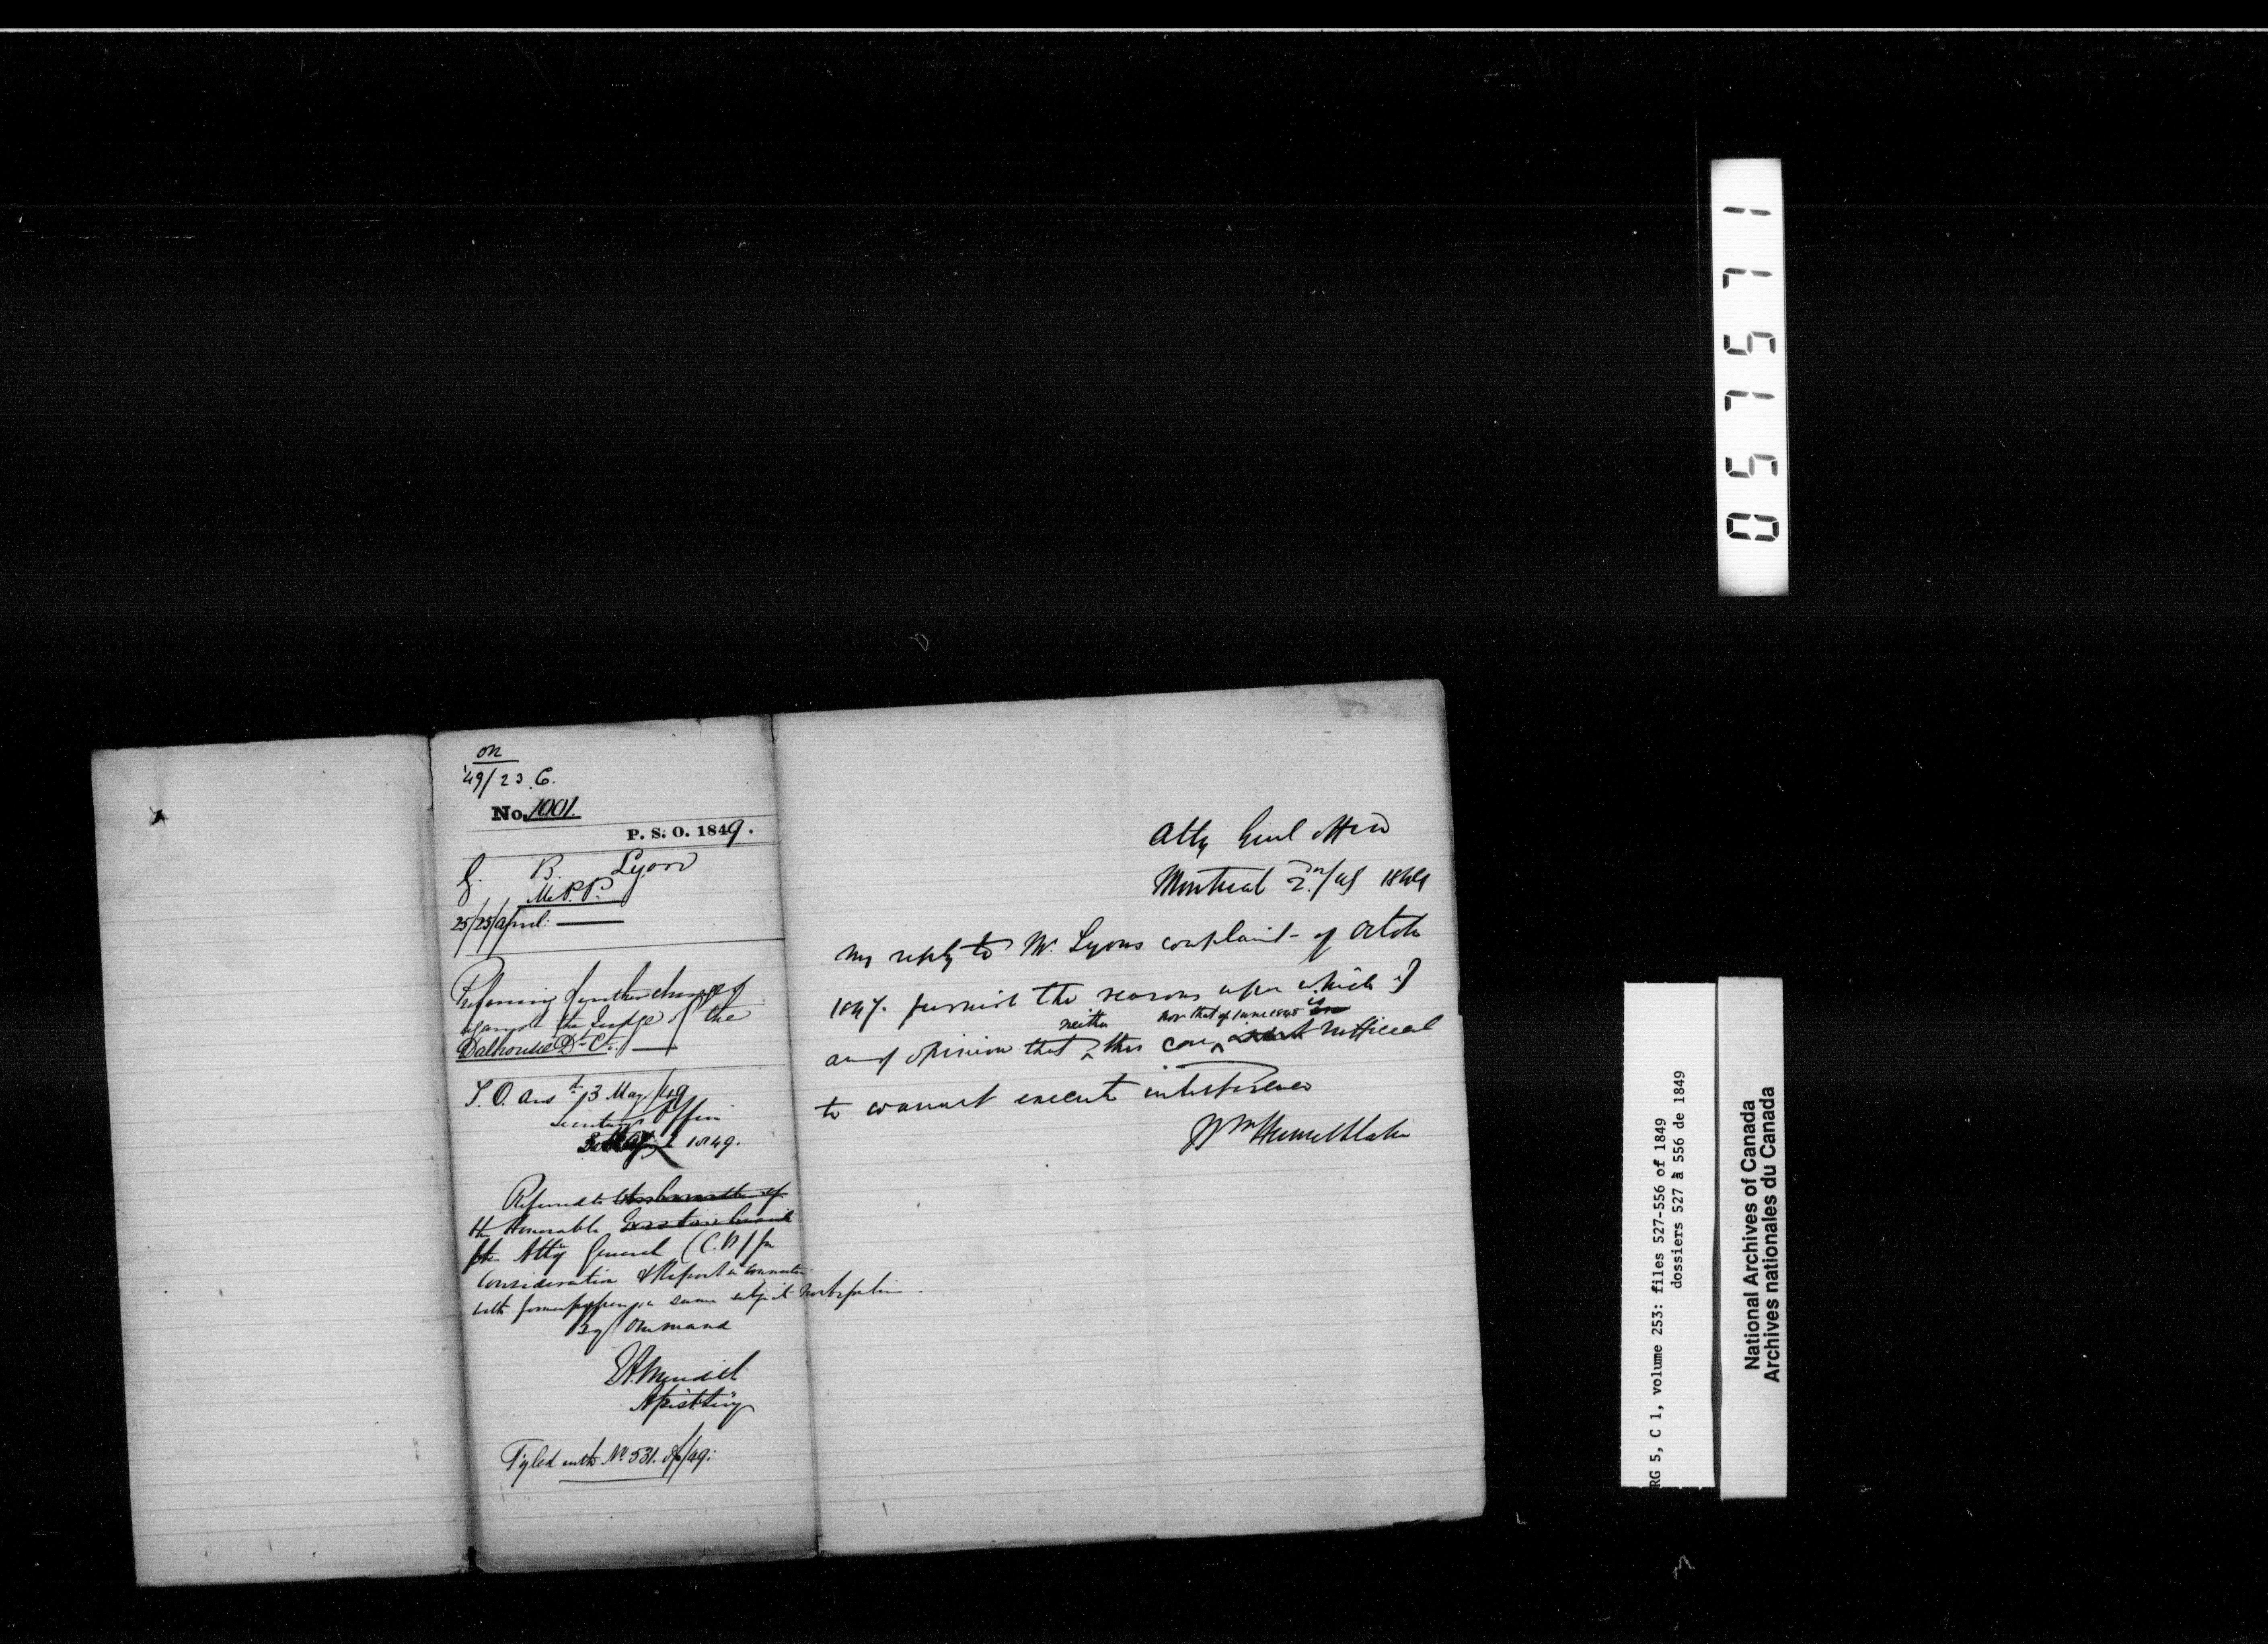 on
'49/23 C.
No. 1001.
P. S. O. 1849.
G. B. Lyon
M.P.P.
25/25/April:
Preferring further charges
against the Judge of the
Dalhousie Dt. Ct.
S. O. ansd 3 May/49
Secretary's Office
2 1849.
Referred to the Committee of
the Honorable Executive Council
the Atty General (C.W) for
Consideration & Report in connection
with former papers on same subject
By Command
Filed with No 531. of/49:
Atty Genl Office
Montreal 2nd
My reply to Mr. Lyons complaint of October
1847. furnish the reasons upon which I
neither nor that of June 1848 is
am of opinion that this case sufficient
to warrant executive interference
Wm Hume Blake
057571
RG 5, C 1, volume 253: files 527-556 of 1849
dossiers 527 à 556 de 1849
National Archives of Canada
Archives nationales du Canada